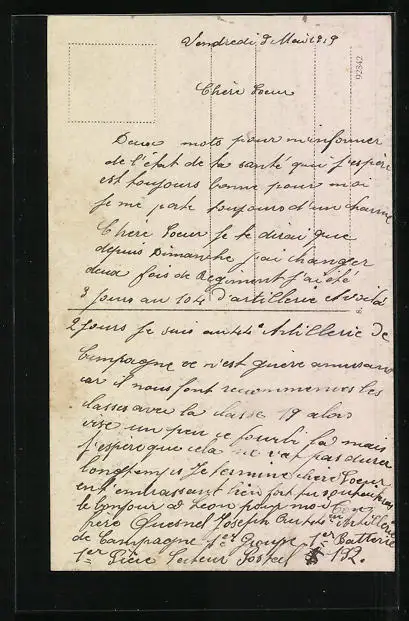 Vendredi 9 Mai 1919
92342
Chère Soeur
Deux mots pour m'informer
de l'état de ta santé qui j'espère
est toujours bonne pour moi
je me porte toujours d'un charme
Chere Soeur je te dirai que
depuis Dimanche j'ai changer
deux fois de Regiment j'ai été
3 jours au 104 d'artillerie et voila
2 jours je suis au 44e Artillerie de
Campagne ce n'est guere amusant
car il nous font recommencer les
classes avec la classe 19 alors
vise un peu ce fourbi la mais
j'espère que cela ne vat pas durer
longtemps Je termine chère Soeur
en t'embrassant bien fort tu souhaiteras
le bonjour a Leon pour moi ton
frère Quesnel Joseph Artillerie
de Campagne 1er Groupe 1er Batterie
1er Pièce Secteur Postal 192.